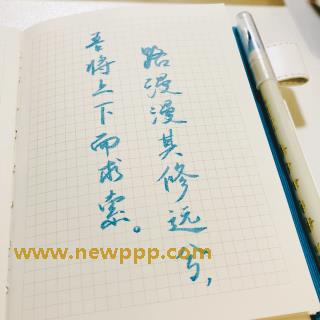 路漫漫其修远兮,
吾将上下而求索。
www.newppp.com